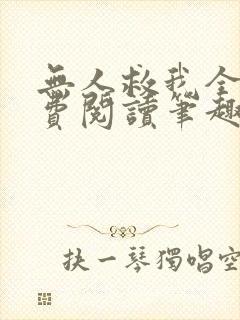 無人救我全
費閱讀筆趣
抉一琴獨唱空